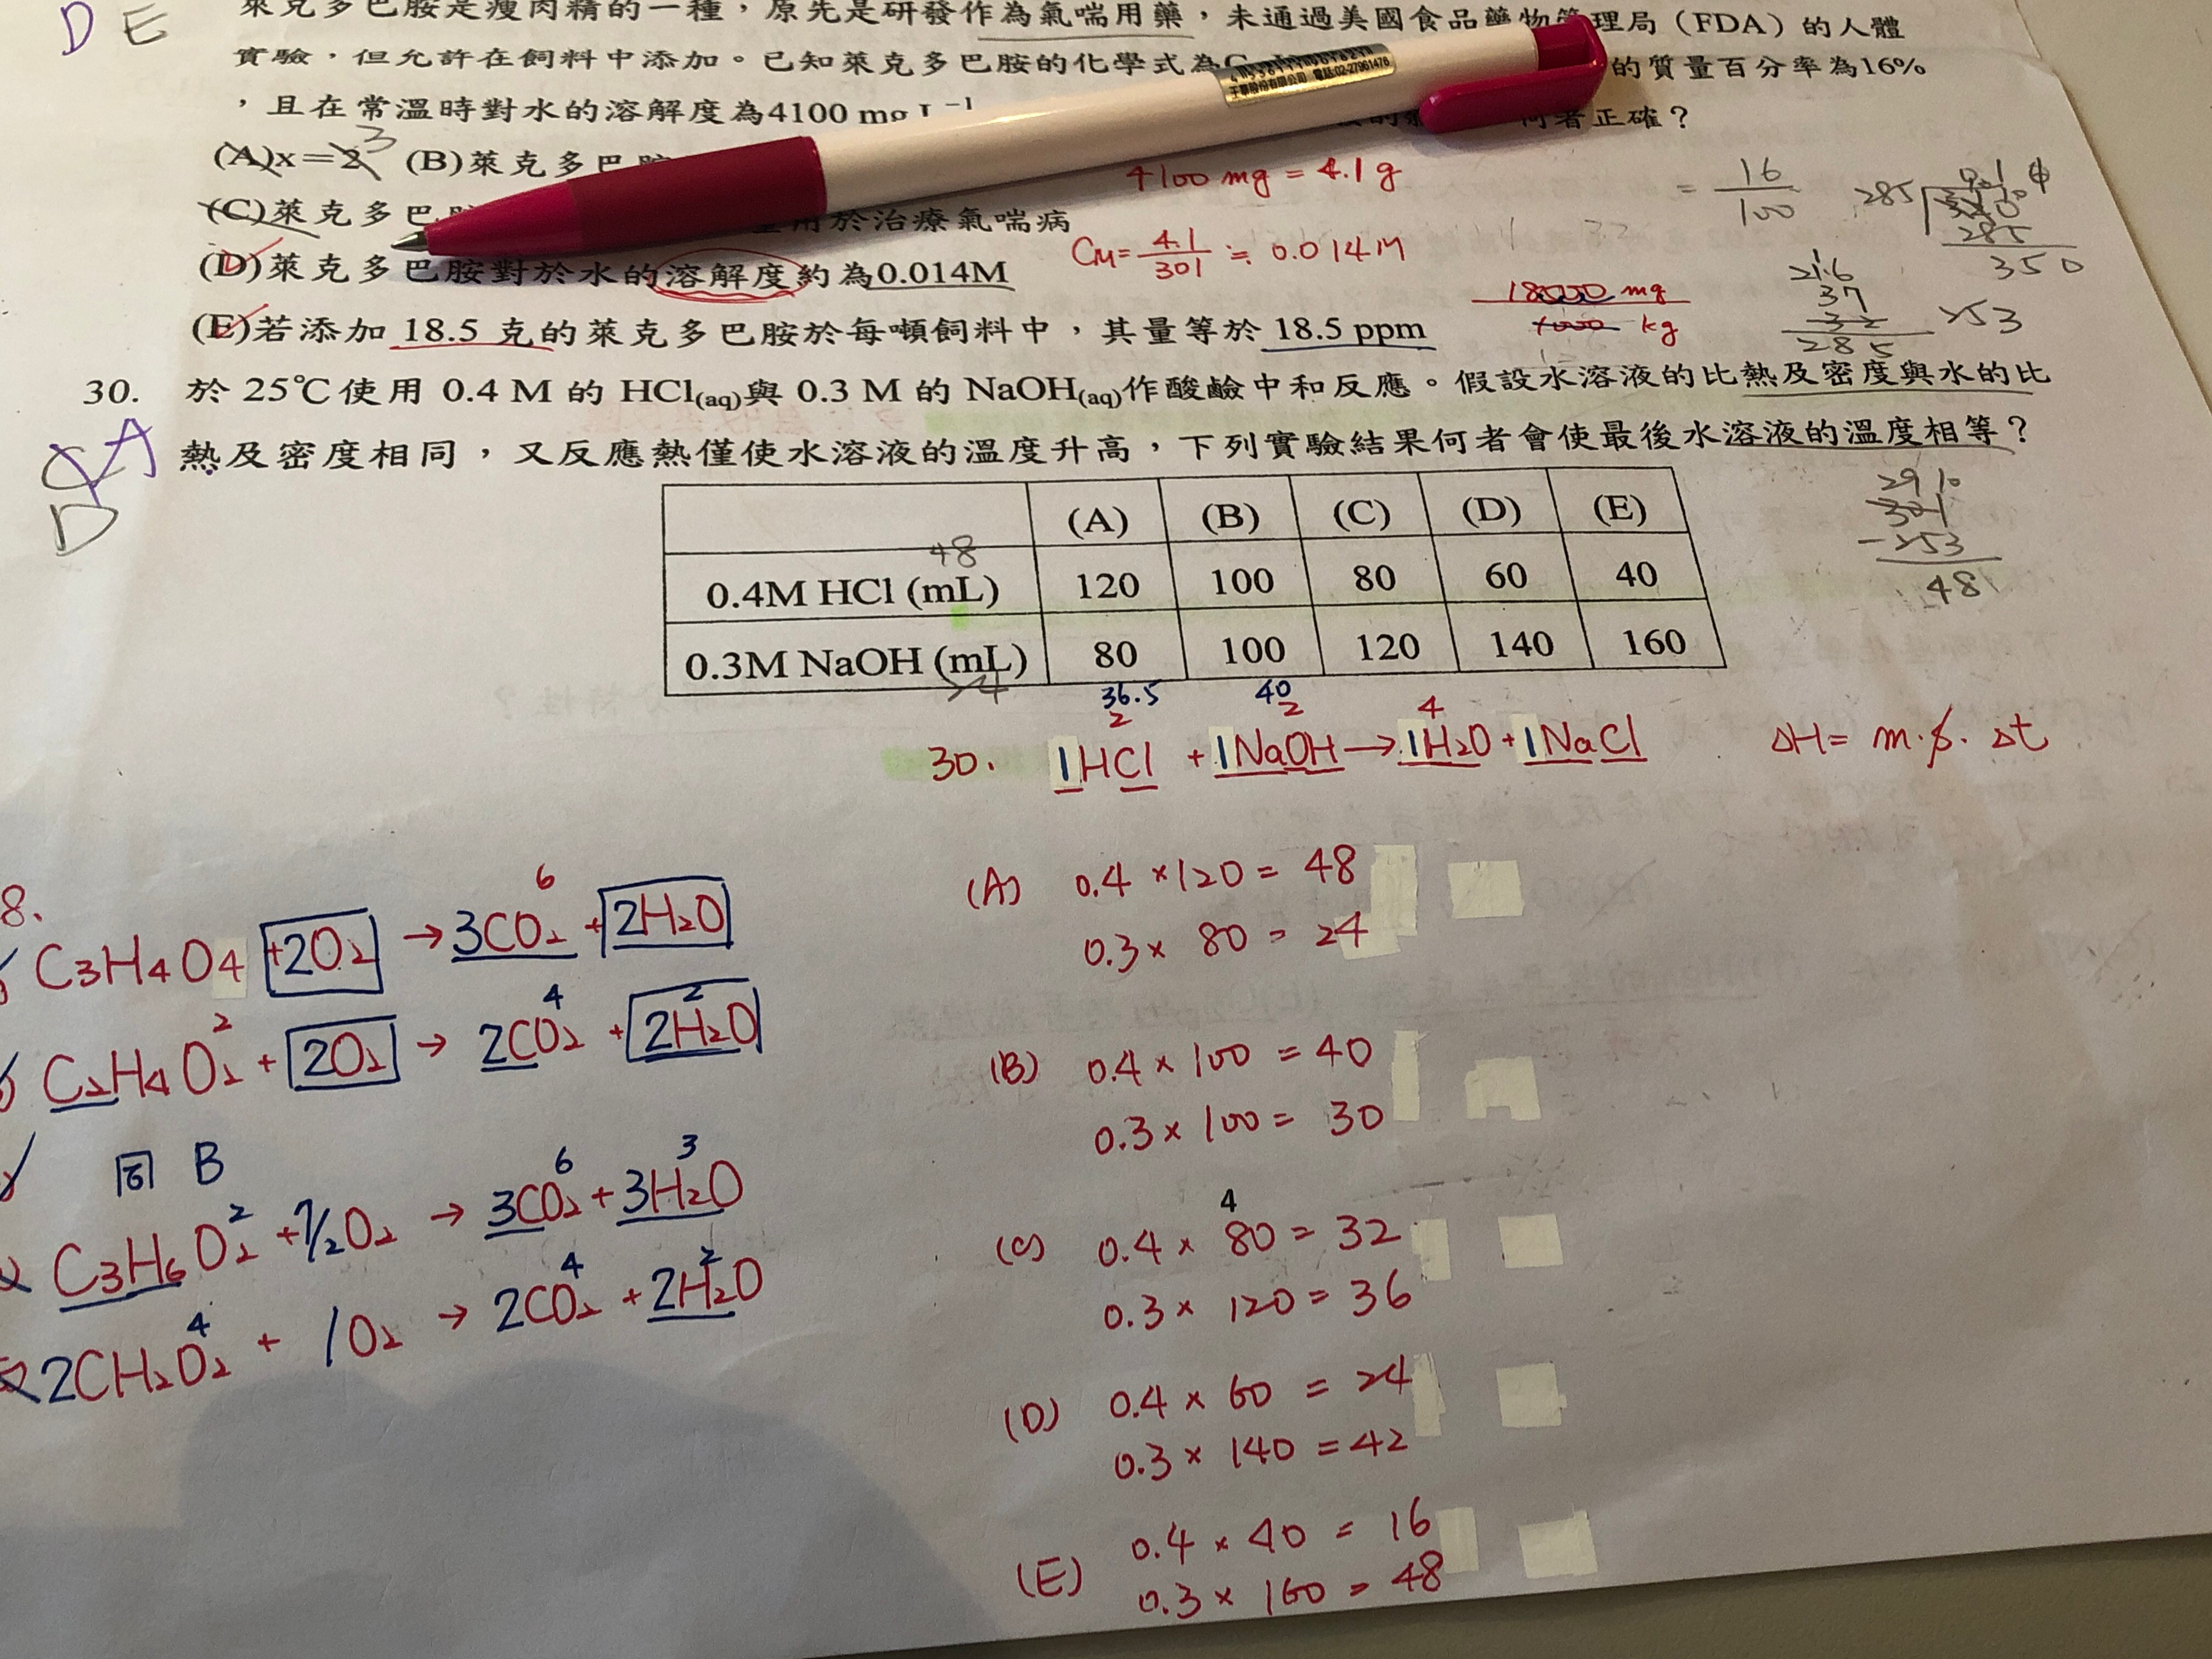 D E
萊克多巴胺是瘦肉精的一種，原先是研發作為氣喘用藥，未通過美國食品藥物管理局（FDA）的人體
實驗，但允許在飼料中添加。已知萊克多巴胺的化學式為C 的質量百分率為16%
，且在常溫時對水的溶解度為4100 mg L⁻¹ 何者正確？
(A)x=2 3 (B)萊克多巴胺
(C)萊克多巴 用於治療氣喘病
(D)萊克多巴胺對於水的溶解度約為0.014M
(E)若添加 18.5 克的萊克多巴胺於每噸飼料中，其量等於 18.5 ppm
電話:02-27961476
4100 mg = 4.1 g
CM = 4.1/301 ≒ 0.014M
18000 mg
1000 kg
= 16/100
285
350
37
285
253
30. 於 25℃使用 0.4 M 的 HCl(aq)與 0.3 M 的 NaOH(aq)作酸鹼中和反應。假設水溶液的比熱及密度與水的比
熱及密度相同，又反應熱僅使水溶液的溫度升高，下列實驗結果何者會使最後水溶液的溫度相等？
A
D
(A) (B) (C) (D) (E)
48
0.4M HCl (mL) 120 100 80 60 40
0.3M NaOH (mL) 80 100 120 140 160
24
321
-253
48
36.5 40
2 2 4
30. 1HCl + 1NaOH → 1H₂O + 1NaCl ΔH = m·s·Δt
(A) 0.4 × 120 = 48
0.3 × 80 = 24
(B) 0.4 × 100 = 40
0.3 × 100 = 30
4
(C) 0.4 × 80 = 32
0.3 × 120 = 36
(D) 0.4 × 60 = 24
0.3 × 140 = 42
(E) 0.4 × 40 = 16
0.3 × 160 = 48
8.
6
C₃H₄O₄ +2O₂ → 3CO₂ + 2H₂O
2 4 2
C₂H₄O₂ + 2O₂ → 2CO₂ + 2H₂O
同 B
2 6 3
C₃H₆O₂ + 7/2O₂ → 3CO₂ + 3H₂O
4 4 2
2CH₂O₂ + 1O₂ → 2CO₂ + 2H₂O